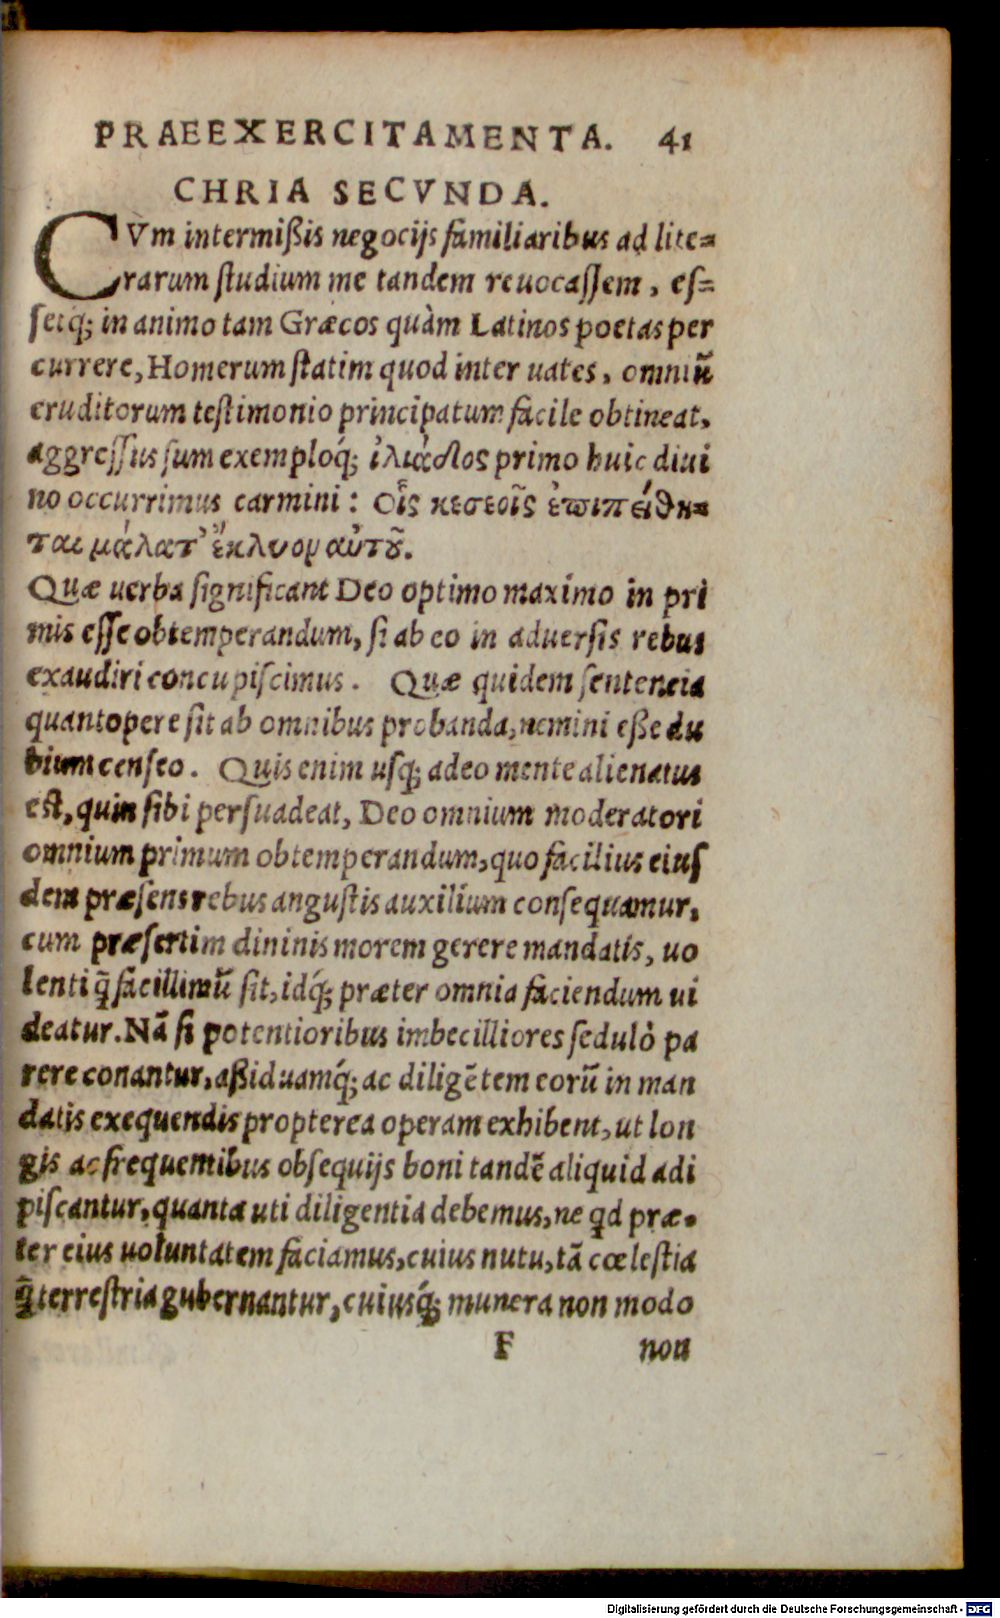 PRAEEXERCITAMENTA. 41
CHRIA SECVNDA.
CVm intermißis negocijs familiaribus ad lite=
rarum ſtudium me tandem reuocaſſem, eſ=
ſetq́; in animo tam Græcos quàm Latinos poetas per
currere, Homerum ſtatim quod inter uates, omniū
eruditorum teſtimonio principatum facile obtineat,
aggreſſus ſum exemploq́; ἰλιάδος primo huic diui
no occurrimus carmini: Οἷς κεσεοῖς ἐπιπείθη=
ται μάλατ' ἔκλυον αὐτοῦ.
Quæ uerba ſignificant Deo optimo maximo in pri
mis eſſe obtemperandum, ſi ab eo in aduerſis rebus
exaudiri concupiſcimus. Quæ quidem ſentencia
quantopere ſit ab omnibus probanda, nemini eße du
bium cenſeo. Quis enim uſq; adeo mente alienatus
eſt, quin ſibi perſuadeat, Deo omnium moderatori
omnium primum obtemperandum, quo facilius eiuſ
dem præſens rebus anguſtis auxilium conſequamur,
cum præſertim dininis morem gerere mandatis, uo
lenti q̄ facillimū ſit, idq́; præter omnia faciendum ui
deatur. Nā ſi potentioribus imbecilliores ſedulò pa
rere conantur, aßiduamq́; ac diligētem eorū in man
datis exequendis propterea operam exhibent, ut lon
gis ac frequentibus obſequijs boni tandē aliquid adi
piſcantur, quanta uti diligentia debemus, ne qd præ=
ter eius uoluntatem faciamus, cuius nutu, tā cœleſtia
q̄ terreſtria gubernantur, cuiusq́; munera non modo
F non
Digitalisierung gefördert durch die Deutsche Forschungsgemeinschaft - DFG